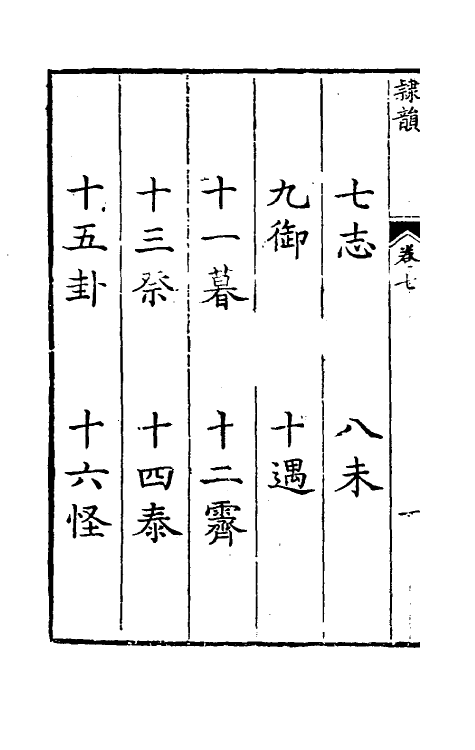 隸韻 卷七 一
七志 八未
九御 十遇
十一暮 十二霽
十三祭 十四泰
十五卦 十六怪